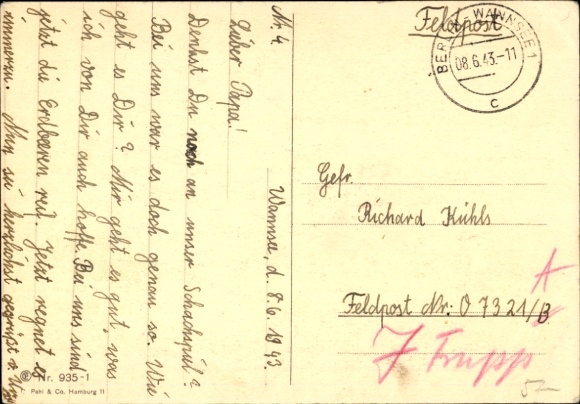 Nr. 4
Wannsee, d. 8.6.1943.
Lieber Papa!
Denkst Du noch an unser Schachspiel?
Bei uns war es doch genau so. Wie
geht es Dir? Mir geht es gut, was
ich von Dir auch hoffe. Bei uns sind
jetzt die Erdbeeren reif. Jetzt regnet es
immerzu. Nun sei herzlichst gegrüßt v.
Nr. 935-1
Pahl & Co. Hamburg 11
Feldpost
BER WANNSEE 1
08.6.43.-11
c
Gefr.
Richard Kühls
A
Feldpost Nr: O 7321/B
Trupp